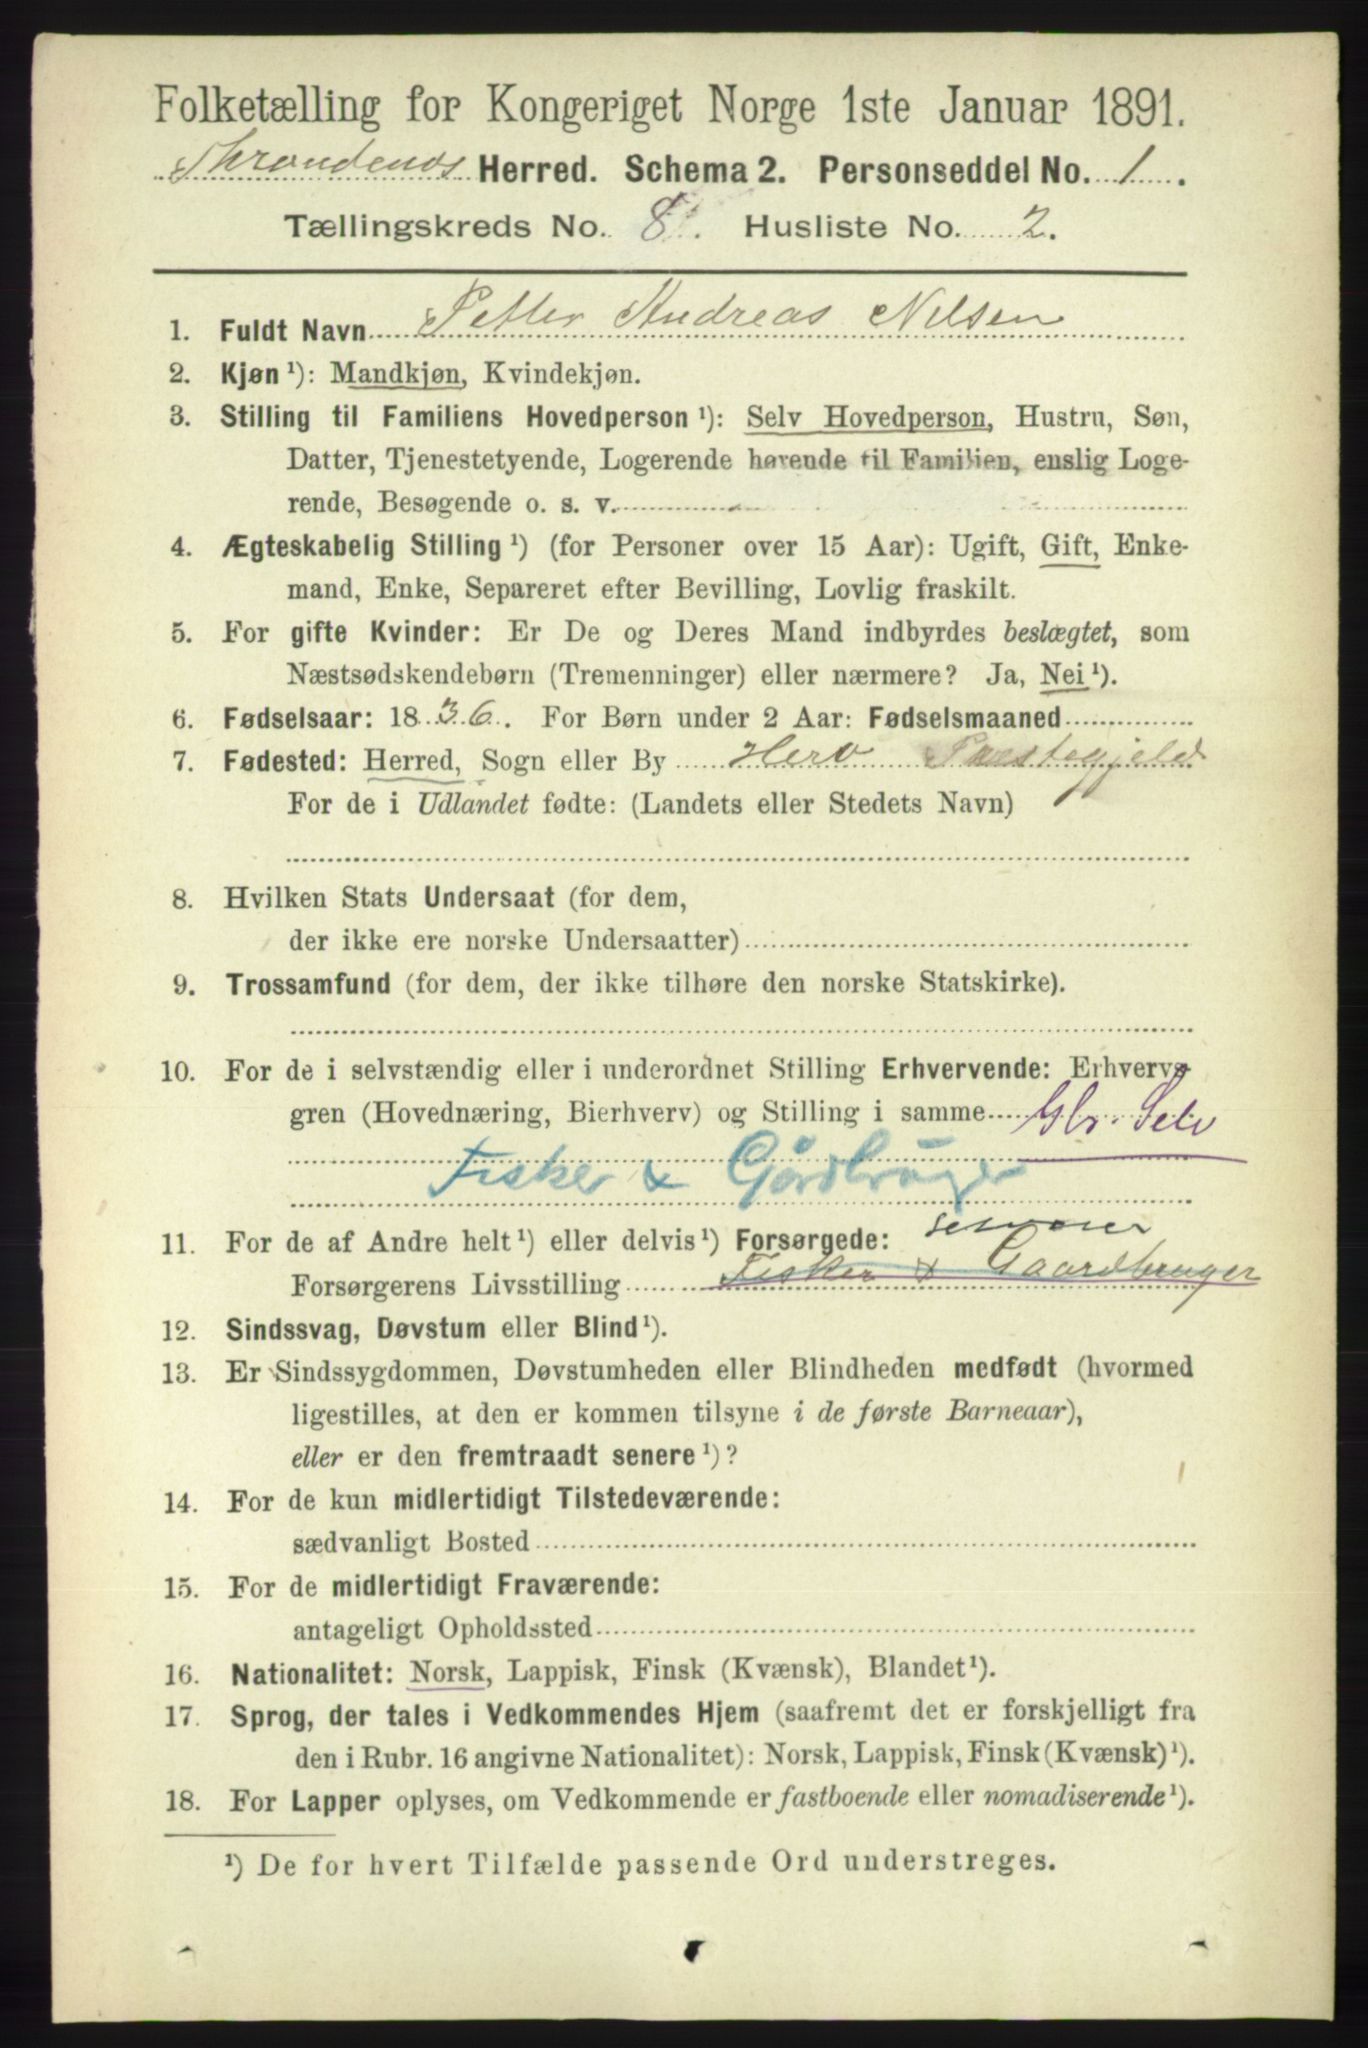 Folketælling for Kongeriget Norge 1ste Januar 1891.
Throndenæs Herred. Schema 2. Personseddel No. 1.
Tællingskreds No. 8. Husliste No. 2.
1. Fuldt Navn Petter Andreas Nilsen
2. Kjøn ¹): Mandkjøn, Kvindekjøn.
3. Stilling til Familiens Hovedperson ¹): Selv Hovedperson, Hustru, Søn,
Datter, Tjenestetyende, Logerende hørende til Familien, enslig Loge-
rende, Besøgende o. s. v.
4. Ægteskabelig Stilling ¹) (for Personer over 15 Aar): Ugift, Gift, Enke-
mand, Enke, Separeret efter Bevilling, Lovlig fraskilt.
5. For gifte Kvinder: Er De og Deres Mand indbyrdes beslægtet, som
Næstsødskendebørn (Tremenninger) eller nærmere? Ja, Nei ¹).
6. Fødselsaar: 1836. For Børn under 2 Aar: Fødselsmaaned
7. Fødested: Herred, Sogn eller By Herø Præstegjeld
For de i Udlandet fødte: (Landets eller Stedets Navn)
8. Hvilken Stats Undersaat (for dem,
der ikke ere norske Undersaatter)
9. Trossamfund (for dem, der ikke tilhøre den norske Statskirke).
10. For de i selvstændig eller i underordnet Stilling Erhvervende: Erhvervs-
gren (Hovednæring, Bierhverv) og Stilling i samme Gbr. Selv
Fisker & Gårdbrüger
11. For de af Andre helt ¹) eller delvis ¹) Forsørgede:
Forsørgerens Livsstilling Fisker & Gaardbruger
12. Sindssvag, Døvstum eller Blind ¹).
13. Er Sindssygdommen, Døvstumheden eller Blindheden medfødt (hvormed
ligestilles, at den er kommen tilsyne i de første Barneaar),
eller er den fremtraadt senere ¹)?
14. For de kun midlertidigt Tilstedeværende:
sædvanligt Bosted
15. For de midlertidigt Fraværende:
antageligt Opholdssted
16. Nationalitet: Norsk, Lappisk, Finsk (Kvænsk), Blandet ¹).
17. Sprog, der tales i Vedkommendes Hjem (saafremt det er forskjelligt fra
den i Rubr. 16 angivne Nationalitet): Norsk, Lappisk, Finsk (Kvænsk) ¹).
18. For Lapper oplyses, om Vedkommende er fastboende eller nomadiserende ¹).
¹) De for hvert Tilfælde passende Ord understreges.